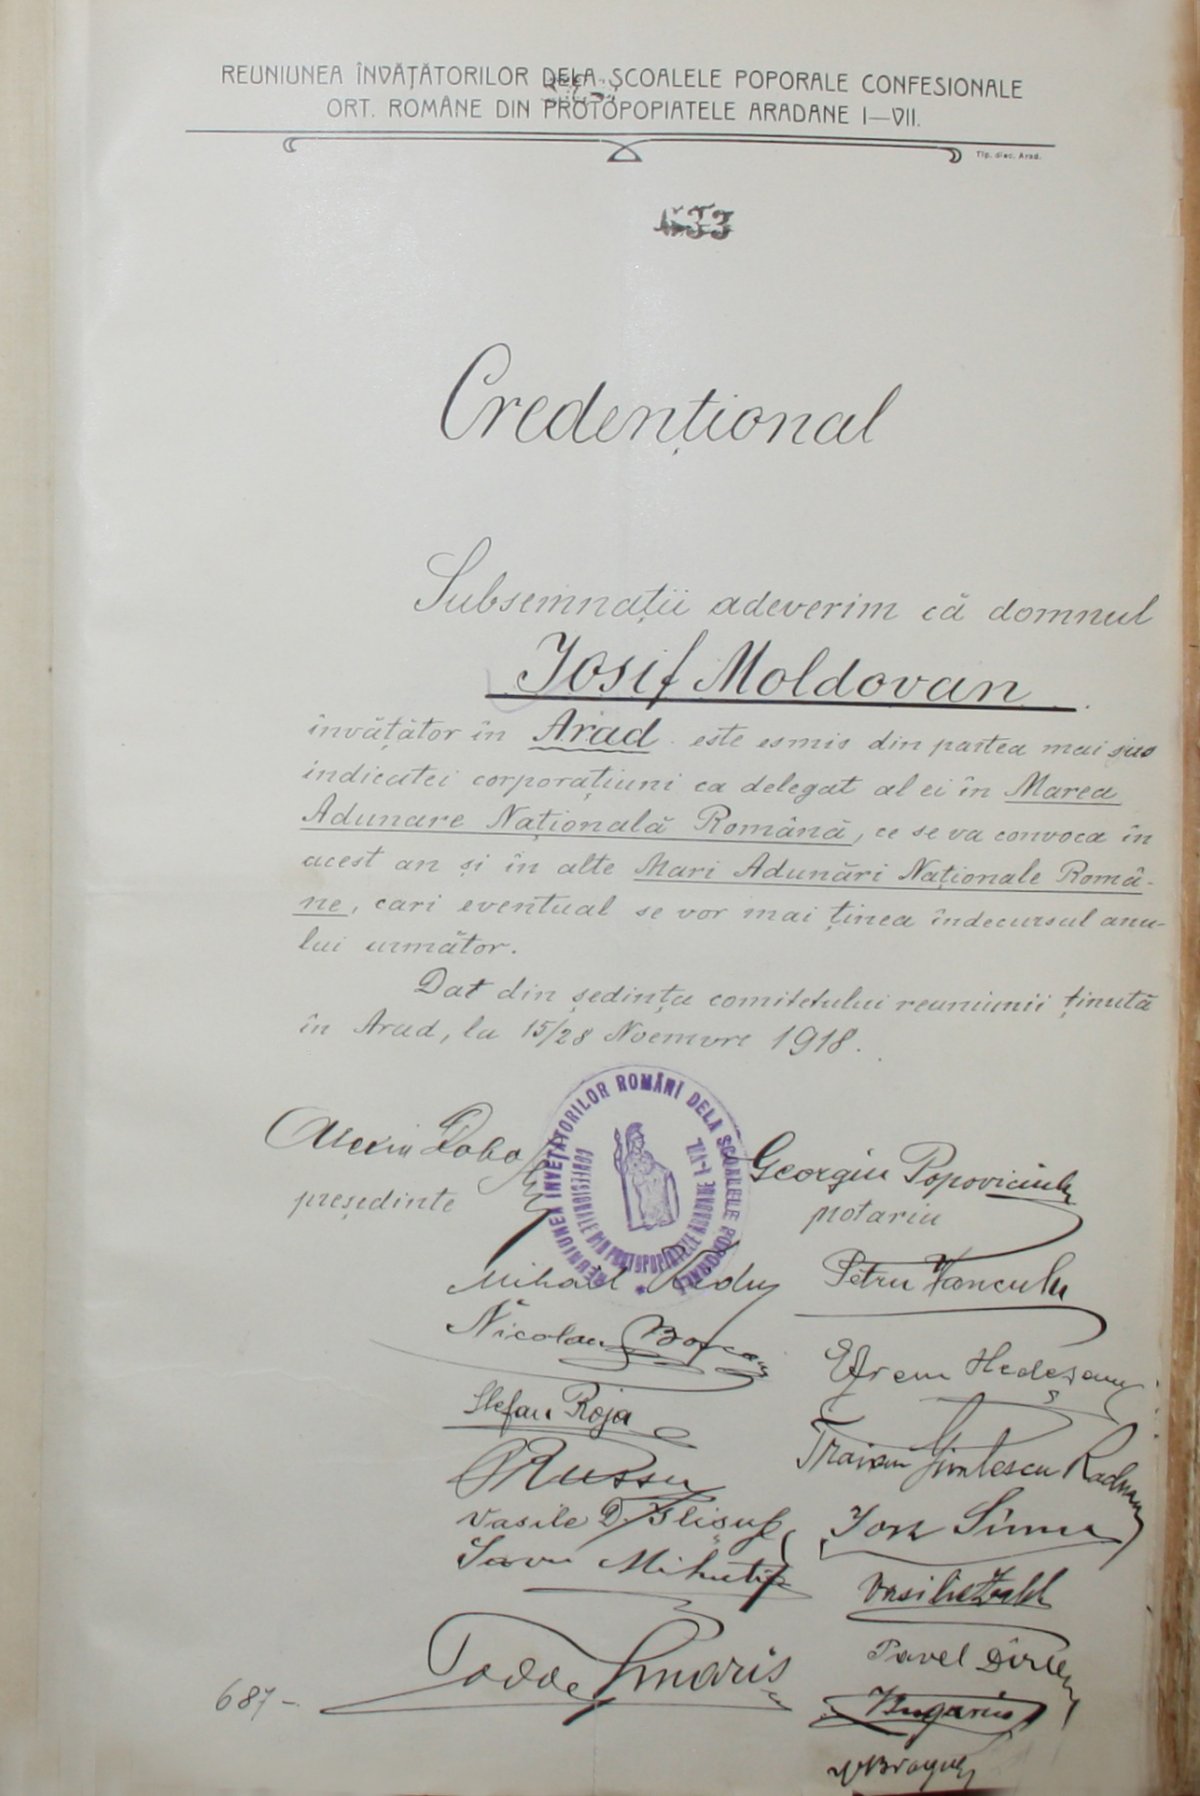 REUNIUNEA ÎNVĂȚĂTORILOR DELA ȘCOALELE POPORALE CONFESIONALE
ORT. ROMÂNE DIN PROTOPOPIATELE ARADANE I—VII.
Tip. diec. Arad.
633
Credențional
Subsemnații adeverim că domnul
Iosif Moldovan
învățător în Arad este esmis din partea mai sus
indicatei corporațiuni ca delegat al ei în Marea
Adunare Națională Română, ce se va convoca în
acest an și în alte Mari Adunări Naționale Româ-
ne, cari eventual se vor mai ținea îndecursul anu-
lui următor.
Dat din ședința comitetului reuniunii ținută
în Arad, la 15/28 Noemvre 1918.
REUNIUNEA INVEȚATORILOR ROMÂNI DELA ȘCOALELE POPORALE
CONFESIONALE DIN PROTOPOPIATELE ARADANE I-VII.
Georgiu Popoviciu
președinte
notariu
Mihail Radu
Petru Vancu
Nicolau
Stefan Roja
Traian Radu
Russu
Vasile D.
Iosif
Savu Mihuțiu
Vasilie
Pavel Dîrlea
Bugariu
687-